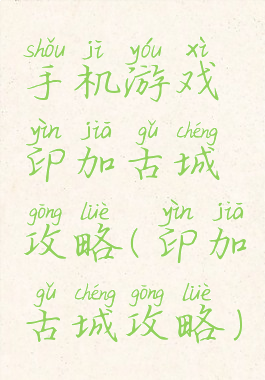 shǒu jī yóu xì
手机游戏
yìn jiā gǔ chéng
印加古城
gōng lüè yìn jiā
攻略(印加
gǔ chéng gōng lüè
古城攻略)